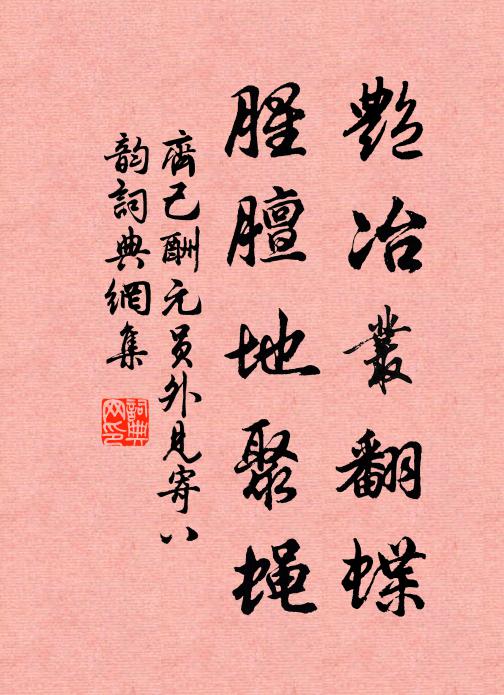 艷冶叢翻蝶
腥膻地聚蝇
齊己酬元員外見寄八
韵詞典網集
詞典
网印